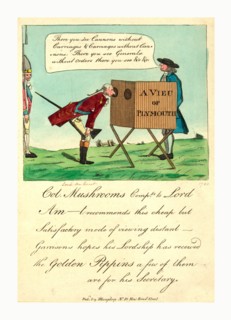 There you see Cannons without
Carriages & Carriages without Can-
nons. There you see Generals
without Orders there you see &c &c
A VIEW
OF
PLYMOUTH
Col Mushrooms Compts to Lord
Am—t recommends this cheap but
Satisfactory mode of viewing distant
Garrisons hopes his Lordship has received
the Golden Pippins a few of them
are for his Secretary.
Pub. by